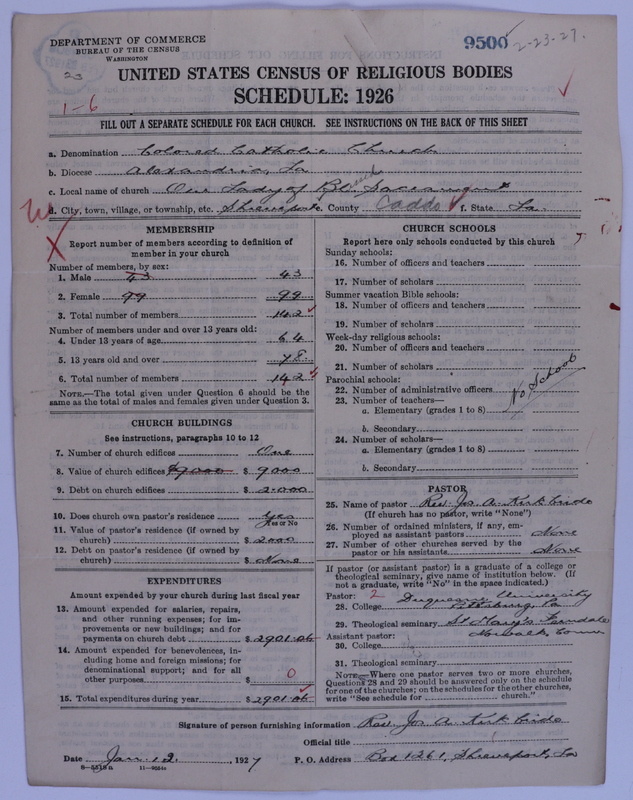 DEPARTMENT OF COMMERCE
BUREAU OF THE CENSUS
WASHINGTON
9500
2-23-27.
23
1-6
UNITED STATES CENSUS OF RELIGIOUS BODIES
SCHEDULE: 1926
FILL OUT A SEPARATE SCHEDULE FOR EACH CHURCH. SEE INSTRUCTIONS ON THE BACK OF THIS SHEET
a. Denomination Colored Catholic Church
b. Diocese Alexandria, La
c. Local name of church Our Lady of Bl. Sacrament
d. City, town, village, or township, etc. Shreveport e. County Caddo f. State La.
MEMBERSHIP
Report number of members according to definition of member in your church
Number of members, by sex:
1. Male 43 43
2. Female 99 99
3. Total number of members 142
Number of members under and over 13 years old:
4. Under 13 years of age 64
5. 13 years old and over 78
6. Total number of members 142
NOTE.—The total given under Question 6 should be the same as the total of males and females given under Question 3.
CHURCH BUILDINGS
See instructions, paragraphs 10 to 12
7. Number of church edifices One
8. Value of church edifices $9000 $ 9000
9. Debt on church edifices $ 2.000
10. Does church own pastor's residence Yes
Yes or No
11. Value of pastor's residence (if owned by church) $ 2000
12. Debt on pastor's residence (if owned by church) $ None
EXPENDITURES
Amount expended by your church during last fiscal year
13. Amount expended for salaries, repairs, and other running expenses; for improvements or new buildings; and for payments on church debt $ 2901.06
14. Amount expended for benevolences, including home and foreign missions; for denominational support; and for all other purposes $ 0
15. Total expenditures during year $ 2901.06
CHURCH SCHOOLS
Report here only schools conducted by this church
Sunday schools:
16. Number of officers and teachers
17. Number of scholars
Summer vacation Bible schools:
18. Number of officers and teachers
19. Number of scholars
Week-day religious schools:
20. Number of officers and teachers
21. Number of scholars
Parochial schools:
22. Number of administrative officers No School
23. Number of teachers—
a. Elementary (grades 1 to 8)
b. Secondary
24. Number of scholars—
a. Elementary (grades 1 to 8)
b. Secondary
PASTOR
25. Name of pastor Rev. Jos. A. Kirkbride
(If church has no pastor, write "None")
26. Number of ordained ministers, if any, employed as assistant pastors None
27. Number of other churches served by the pastor or his assistants None
If pastor (or assistant pastor) is a graduate of a college or theological seminary, give name of institution below. (If not a graduate, write "No" in the space indicated.)
Pastor: 2 Duquesne University
28. College Pittsburg, Pa
29. Theological seminary St Mary's Ferndale
Assistant pastor: Norwalk, Conn
30. College
31. Theological seminary
NOTE.—Where one pastor serves two or more churches, Questions 28 and 29 should be answered only on the schedule for one of the churches; on the schedules for the other churches, write "See schedule for church."
Signature of person furnishing information Rev. Jos A. Kirkbride
Official title
Date Jan. 12, 1927 P. O. Address Box 1261, Shreveport, La
8—5515a 11—9564c